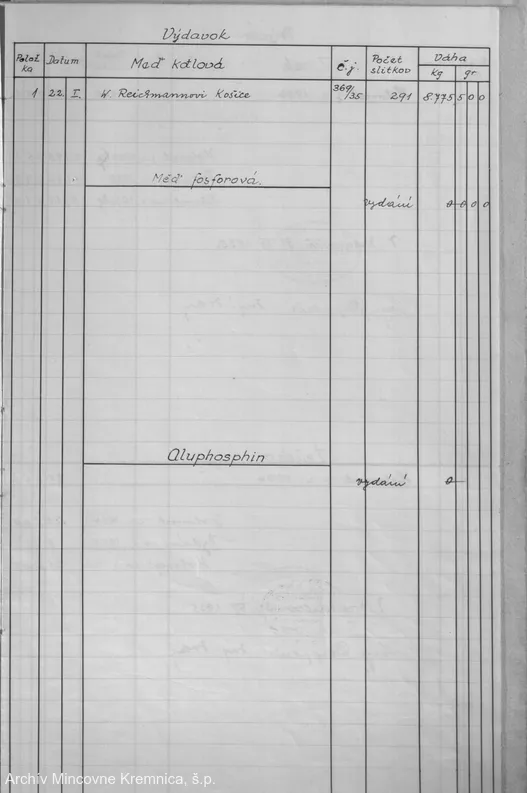 Výdavok
Polož
ka
Datum
Meď kotlová
č.j.
Počet
slitkov
Váha
kg gr.
1 22. I. W. Reichmannovi Košice 369/35 291 8.775 5 0 0
Meď fosforová.
vydání 0 0 0 0
Aluphosphin
vydání 0
Archív Mincovne Kremnica, š.p.